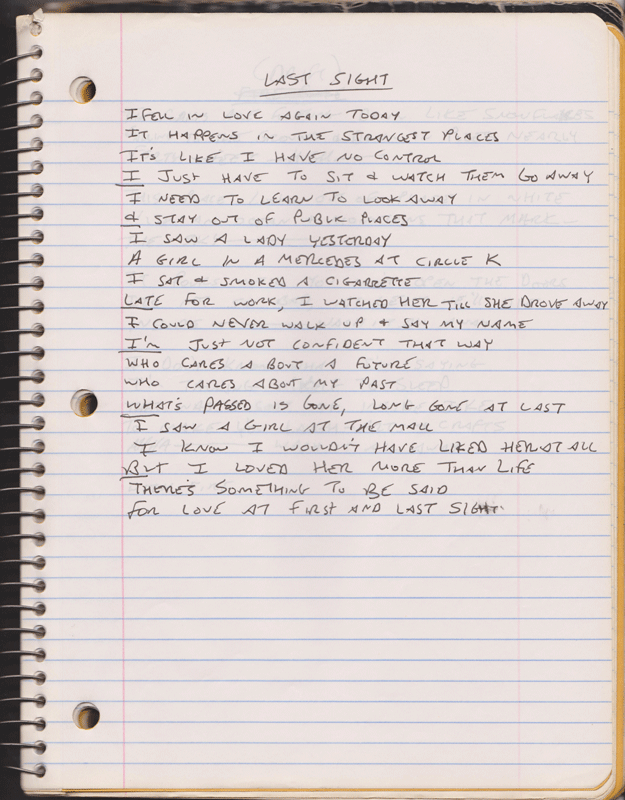 LAST SIGHT
I FELL IN LOVE AGAIN TODAY
IT HAPPENS IN THE STRANGEST PLACES
IT'S LIKE I HAVE NO CONTROL
I JUST HAVE TO SIT & WATCH THEM GO AWAY
I NEED TO LEARN TO LOOK AWAY
& STAY OUT OF PUBLIC PLACES
I SAW A LADY YESTERDAY
A GIRL IN A MERCEDES AT CIRCLE K
I SAT & SMOKED A CIGARETTE
LATE FOR WORK, I WATCHED HER TILL SHE DROVE AWAY
I COULD NEVER WALK UP & SAY MY NAME
I'M JUST NOT CONFIDENT THAT WAY
WHO CARES ABOUT A FUTURE
WHO CARES ABOUT MY PAST
WHAT'S PASSED IS GONE, LONG GONE AT LAST
I SAW A GIRL AT THE MALL
I KNOW I WOULDN'T HAVE LIKED HER AT ALL
BUT I LOVED HER MORE THAN LIFE
THERE'S SOMETHING TO BE SAID
FOR LOVE AT FIRST AND LAST SIGHT.